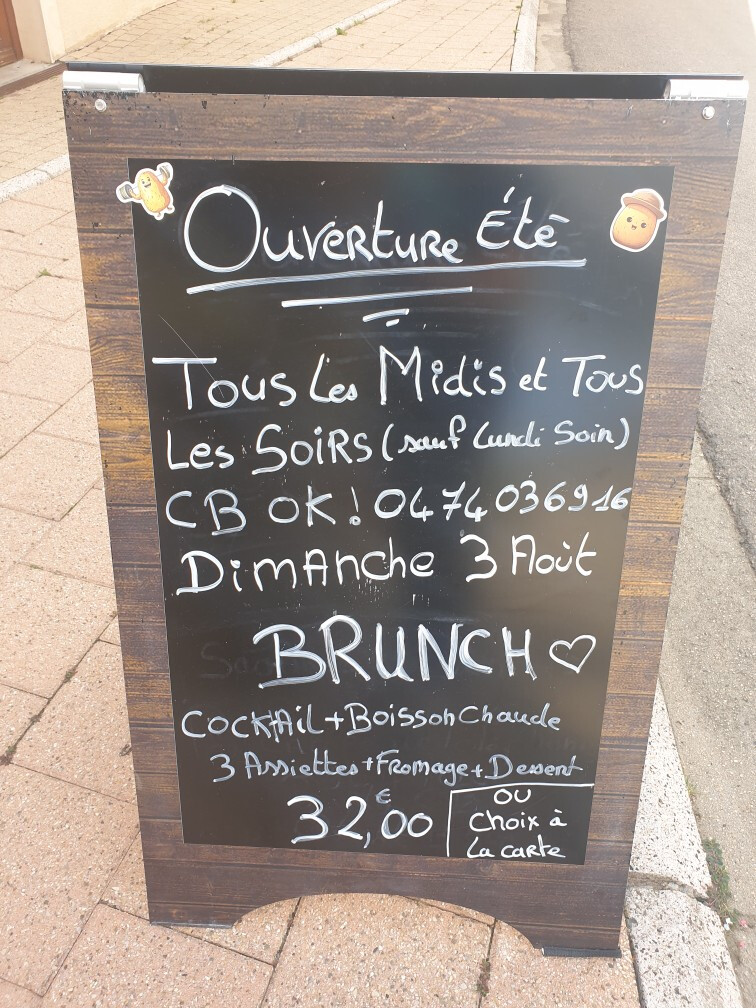 Ouverture Étè
Tous Les Midis et Tous
Les Soirs (sauf Lundi Soir)
CB OK! 0474036916
Dimanche 3 Août
BRUNCH ♡
Cocktail+Boisson Chaude
3 Assiettes+Fromage+Dessert
32,00 €
ou
choix à
La carte